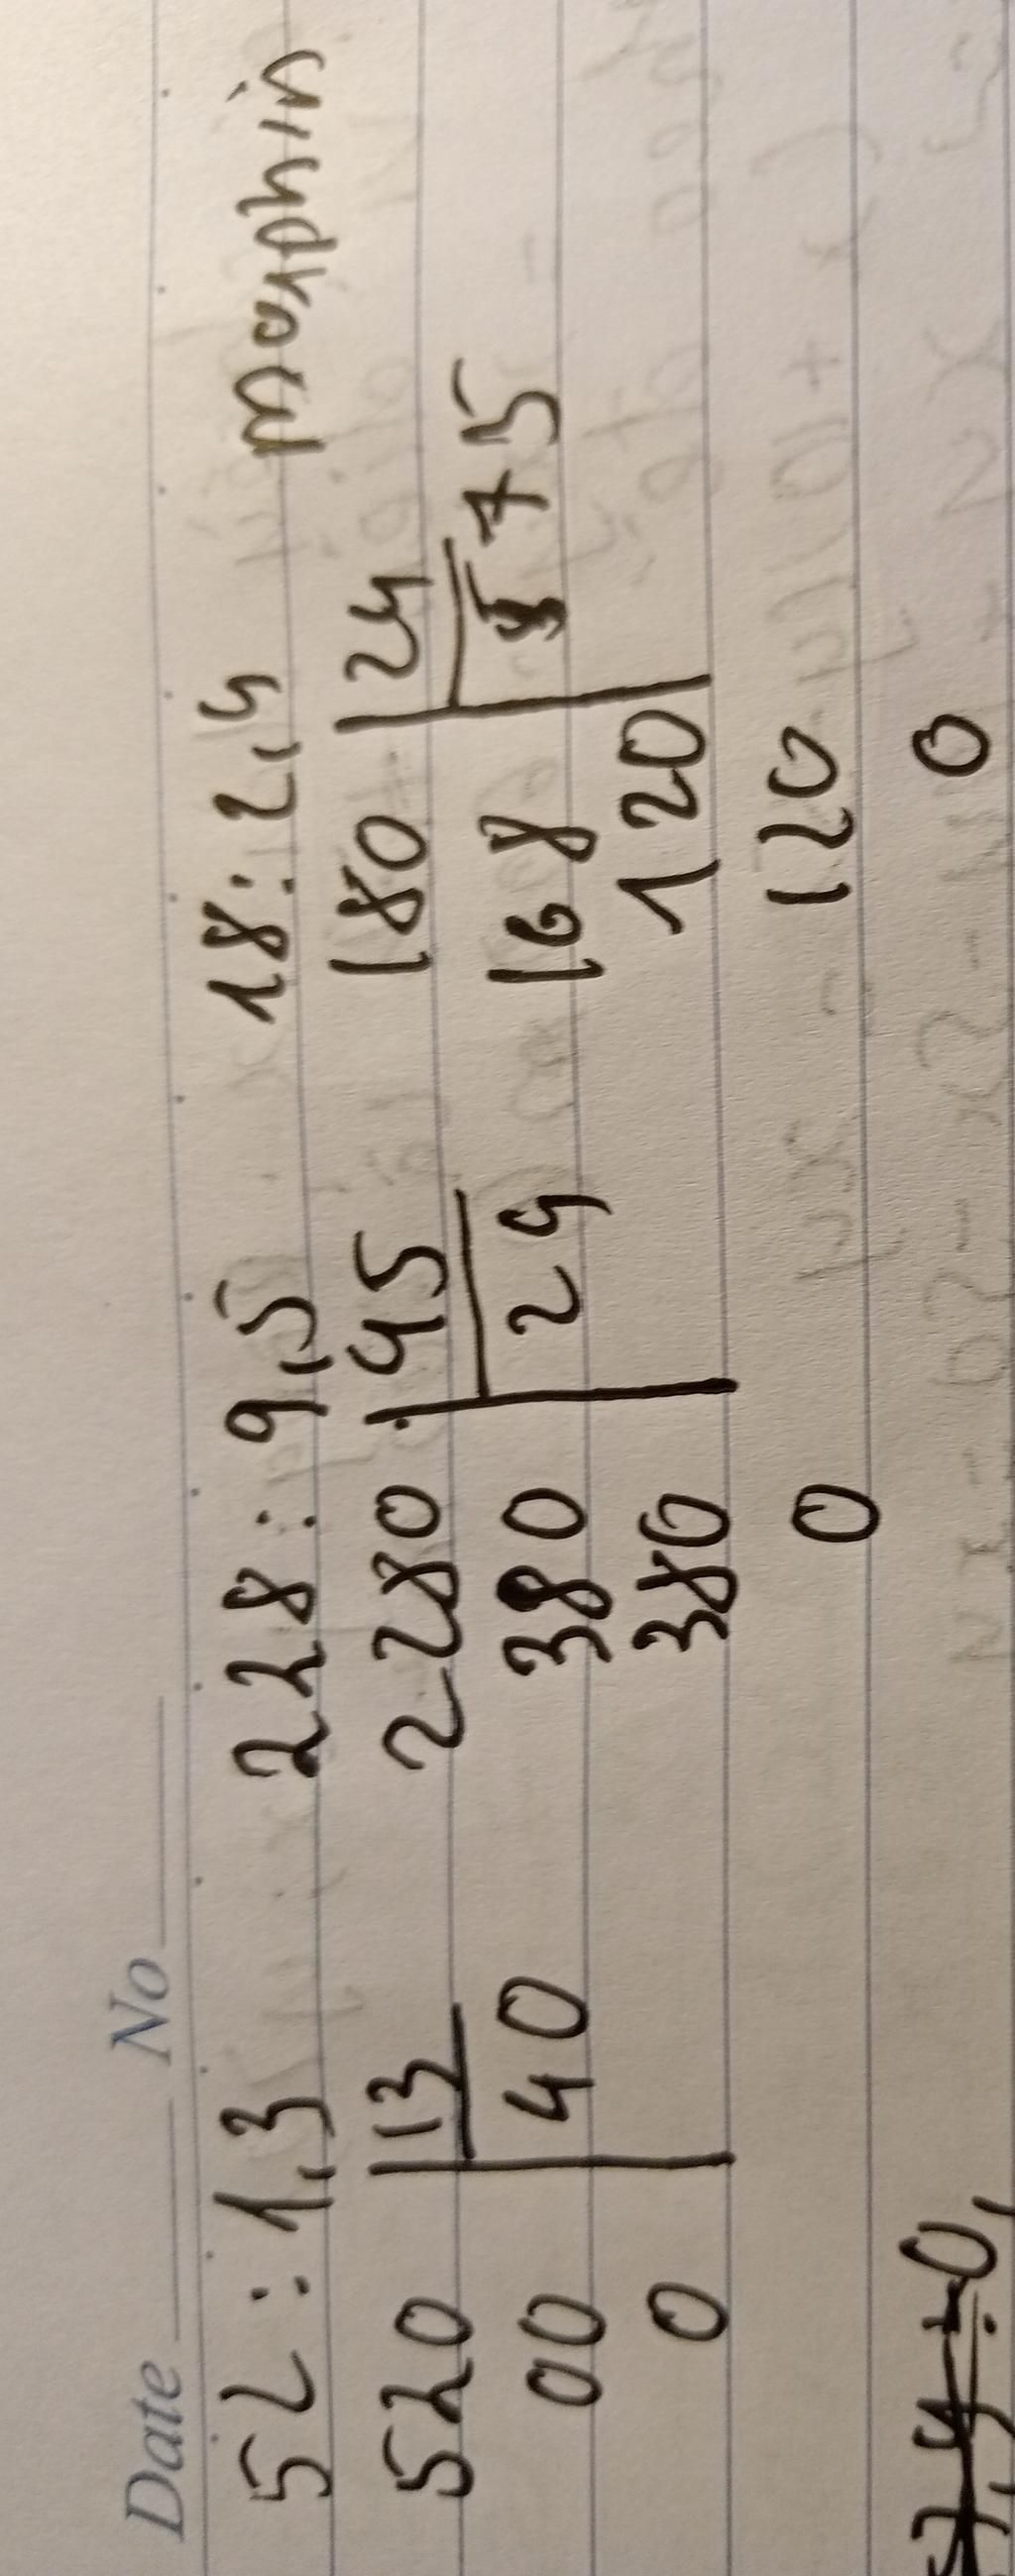 Date No
52 : 1,3 228 : 9,5 18 : 2,4
520 13 2280 95 180 24
00 40 380 24 168 75
0 380 120
0 120
0